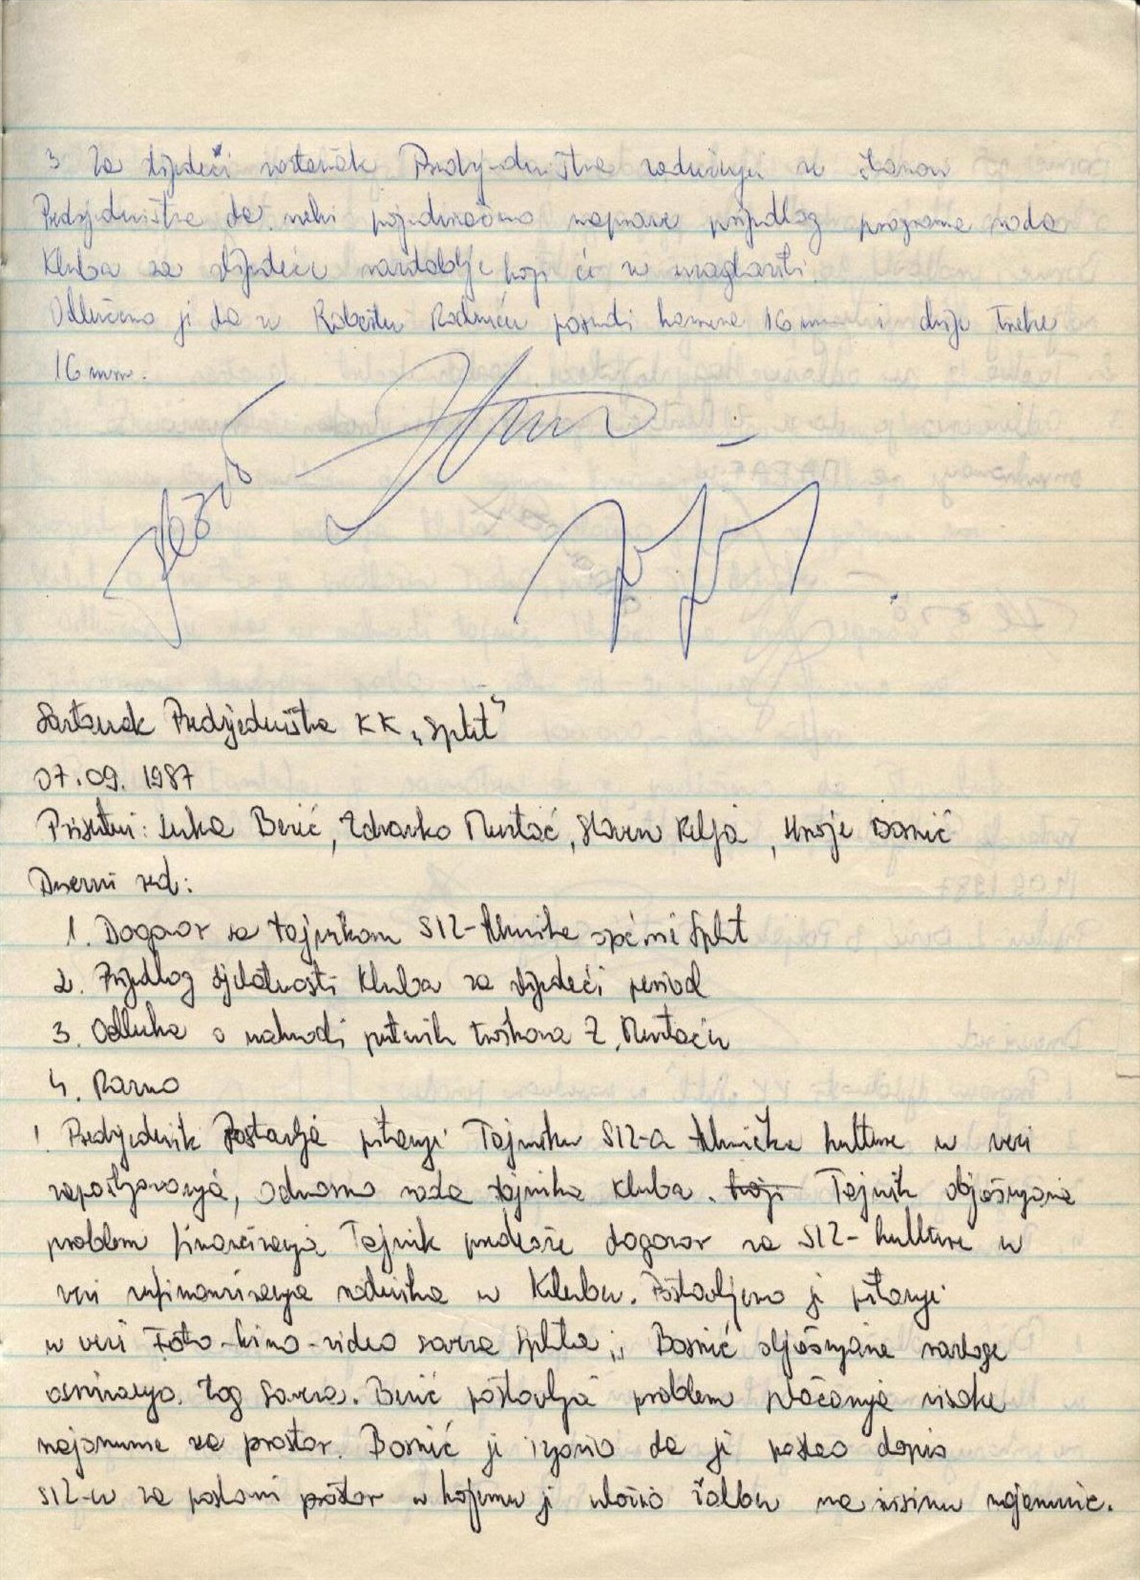 3 Za slijedeći sastanak Predsjedništva zadužuju se članovi
Predsjedništva da neki pojedinačno naprave prijedlog programa rada
Kluba za slijedeće razdoblje koji će se usaglasiti.
Odlučeno je da se Robertu Radniću posudi kamera 16 mm i dvije trake
16 mm.
Sastanak Predsjedništva KK „Split"
07.09. 1987
Prisutni: Luka Berić, Zdravko Mustać, Slaven Relja, Hrvoje Bosnić
Dnevni red:
1. Dogovor sa tajnikom SIZ-tehničke općine Split
2. Prijedlog djelatnosti Kluba za slijedeći period
3. Odluka o naknadi putnih troškova Z. Mustaću
4. Razno
1 Predsjednik postavlja pitanje Tajniku SIZ-a tehničke kulture u vezi
zapošljavanja, odnosno rada tajnika Kluba. koji Tajnik objašnjava
problem financiranja Tajnik predlaže dogovor sa SIZ-kulture u
vezi sufinanciranja radnika u Klubu. Postavljeno je pitanje
u vezi Foto-kino-video saveza Splita, Bosnić objašnjava razloge
osnivanja tog Saveza. Berić postavlja problem plaćanja visoke
najamnine za prostor. Bosnić je izjavio da je poslao dopis
SIZ-u za poslovni prostor u kojemu je uložio žalbu na visinu najamnine.